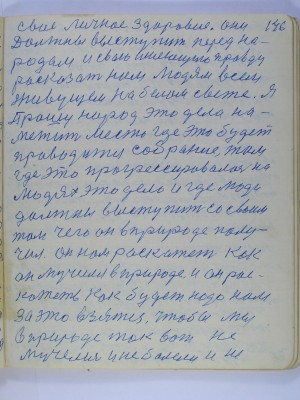 свое личное здоровие. они 146
должны выступит перед на-
родам и свою имеющию правду
росказат нам людям всем
живущем на белом свете. Я
прошу народ это дела на-
метит место где это будет
проводится собрание, там
где это прогрессировалос на
людях это дело и где люди
должны выступит со своим
там чего он в природе полу-
чил. Он нам роскажет как
он мучился в природе, и он рос-
кажеть как будет надо нам
за это взятся. чтобы мы
в природе так вот не
мучелис и не болели и